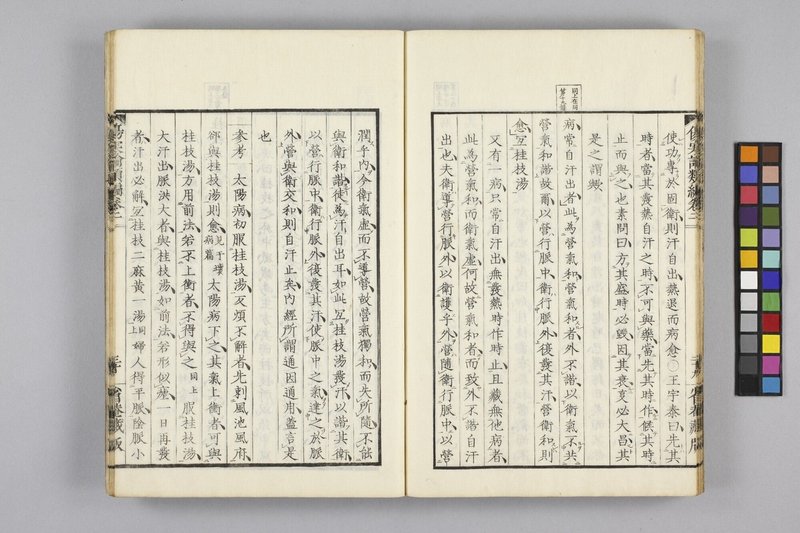 使功專於固衛則汗自出蒸退而病愈〇王宇泰曰先其
時者當其發蒸自汗之時不可與藥當先其時作候其時
止而與之也素問曰方其盛時必毀因其衰也事必大昌其
是之謂歟
病常自汗出者此為營氣和營氣和者外不諧以衛氣不共
營氣和諧故爾以營行脈中衛行脈外復發其汗營衛和則
愈宜桂枝湯
又有一病只常自汗出無發蒸時作時止且藏無他病者
此為營氣和而衛氣虛何故營氣和者而致外不諧自汗
出也夫衛導營行脈外以衛護乎外營隨衛行脈中以營
潤乎內今衛氣虛而不導營故營氣獨和而失所隨不能
與衛和諧徒為汗自出耳如此宜桂枝湯發汗以諧其衛
以營行脈中衛行脈外復發其汗使脈中之氣達之於脈
外營與衛交和則自汗止矣內經所謂通因通用蓋言是
也
參考 太陽病初服桂枝湯反煩不解者先刺風池風府
卻與桂枝湯則愈 太陽病下之其氣上衝者可與
桂枝湯方用前法若不上衝者不得與之同上 服桂枝湯
大汗出脈洪大者與桂枝湯如前法若形似瘧一日再發
者汗出必解宜桂枝二麻黃一湯同上 婦人得平脈陰脈小